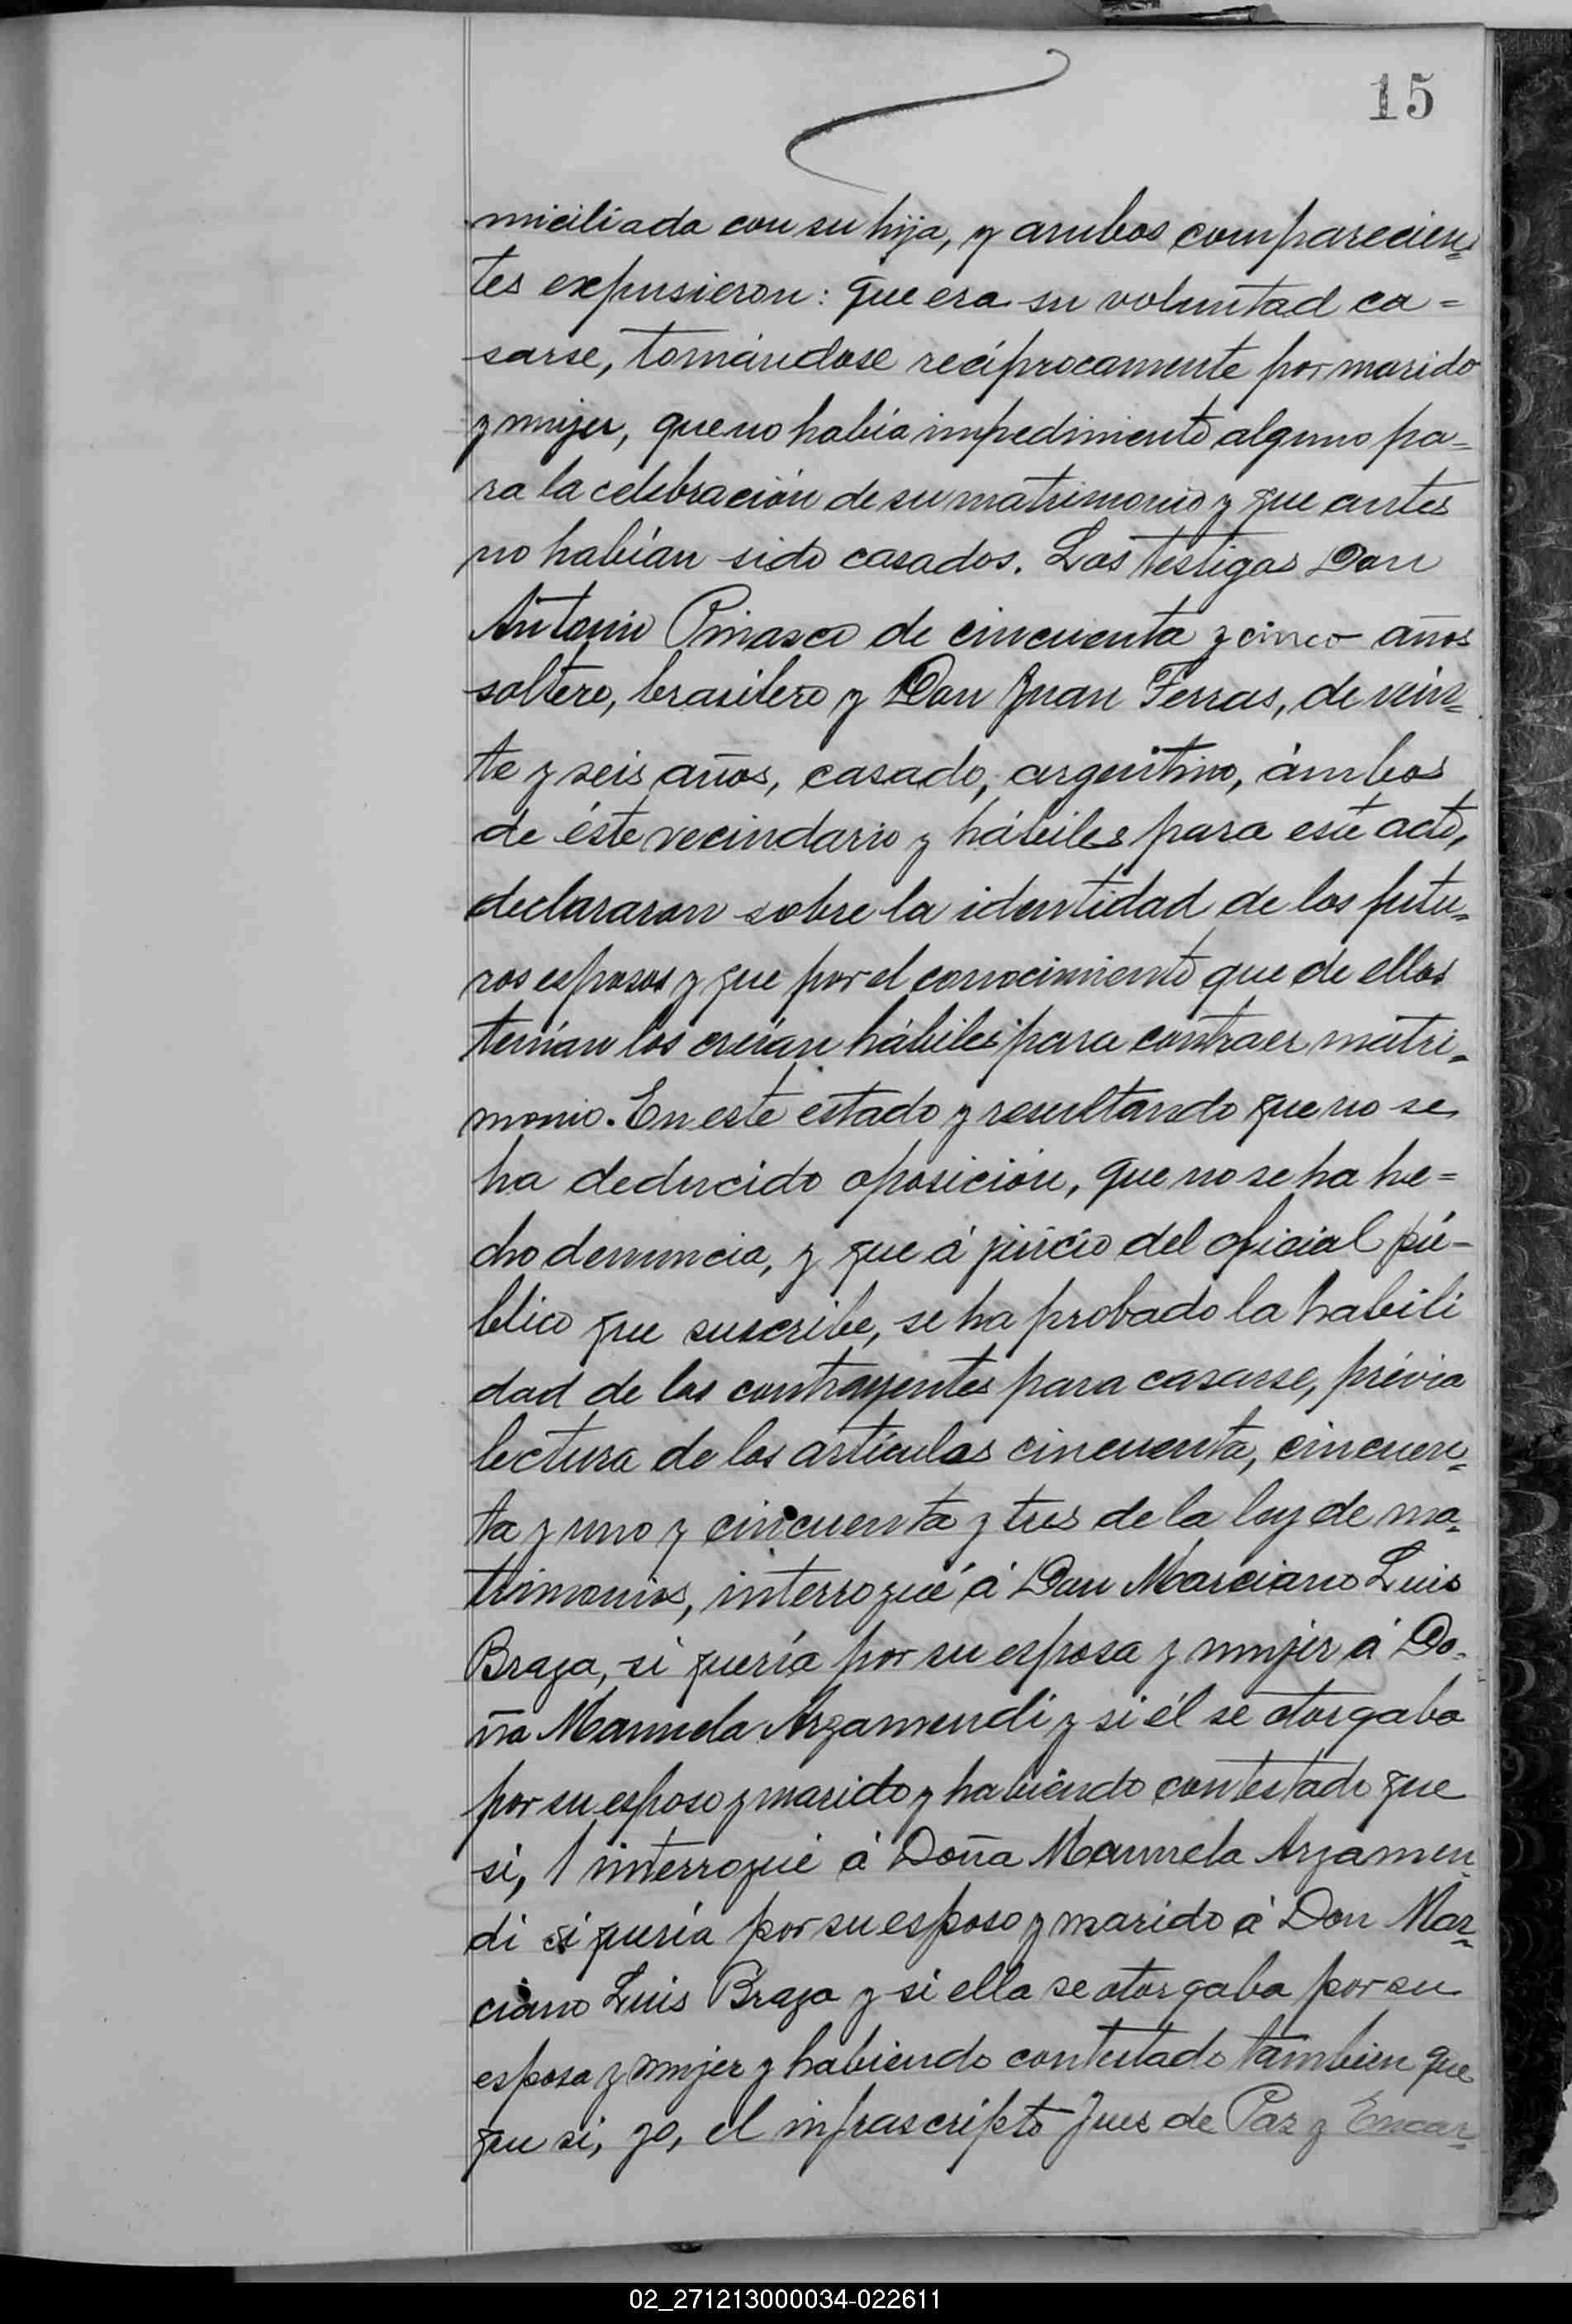 15
miciliada con su hija, y ambos comparecien=
tes expusieron: que era su voluntad ca=
sarse, tomándose recíprocamente por marido
y mujer, que no había impedimento alguno pa=
ra la celebración de su matrimonio y que antes
no habían sido casados. Los testigos Don
Antonio Pinasco de cincuenta y cinco años
soltero, brasilero y Don Juan Ferras, de vein=
te y seis años, casado, argentino, ámbos
de éste vecindario y hábiles para este acto,
declararon sobre la identidad de los futu=
ros esposos y que por el conocimiento que de ellos
tenían los creían hábiles para contraer matri=
monio. En este estado y resultando que no se
ha deducido oposición, que no se ha he=
cho denuncia, y que á juicio del oficial pú=
blico que suscribe, se ha probado la habili
dad de los contrayentes para casarse, prévia
lectura de los artículos cincuenta, cincuen=
ta y uno y cincuenta y tres de la ley de ma=
trimonios, interrogué á Don Marciano Luis
Braga, si quería por su esposa y mujer á Do=
ña Manuela Argamendi y si él se otorgaba
por su esposo y marido y habiendo contestado que
si, interrogué á Doña Manuela Argamen=
di si quería por su esposo y marido á Don Mar=
ciano Luis Braga y si ella se otorgaba por su
esposa y mujer y habiendo contestado tambien que
que si, yo, el infrascripto Juez de Paz y Encar=
02_271213000034-022611